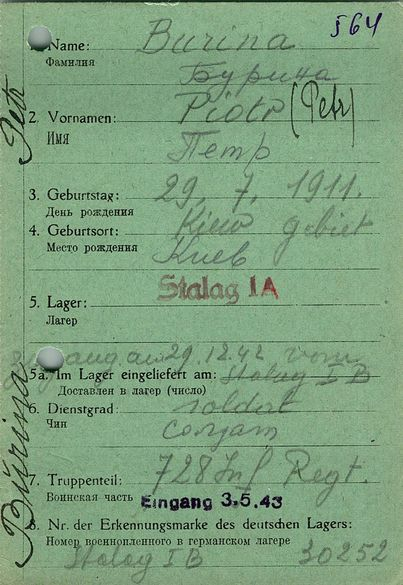 564
1. Name: Burina
Фамилия
Бурина
2. Vornamen: Piotr (Petr)
Имя
Петр
3. Geburtstag: 29. 7. 1911.
День рождения
4. Geburtsort: Kiew gebiet
Место рождения
Киев
Stalag IA
5. Lager:
Лагер
am 29.12.42 vom
5a. Im Lager eingeliefert am: Stalag I B
Доставлен в лагер (число)
6. Dienstgrad: soldat
Чин
солдат
7. Truppenteil: 728 Inf Regt.
Воинская часть
Eingang 3.5.43
8. Nr. der Erkennungsmarke des deutschen Lagers:
Номер военнопленного в германском лагере
Stalag I B 30252
Burina
Petr